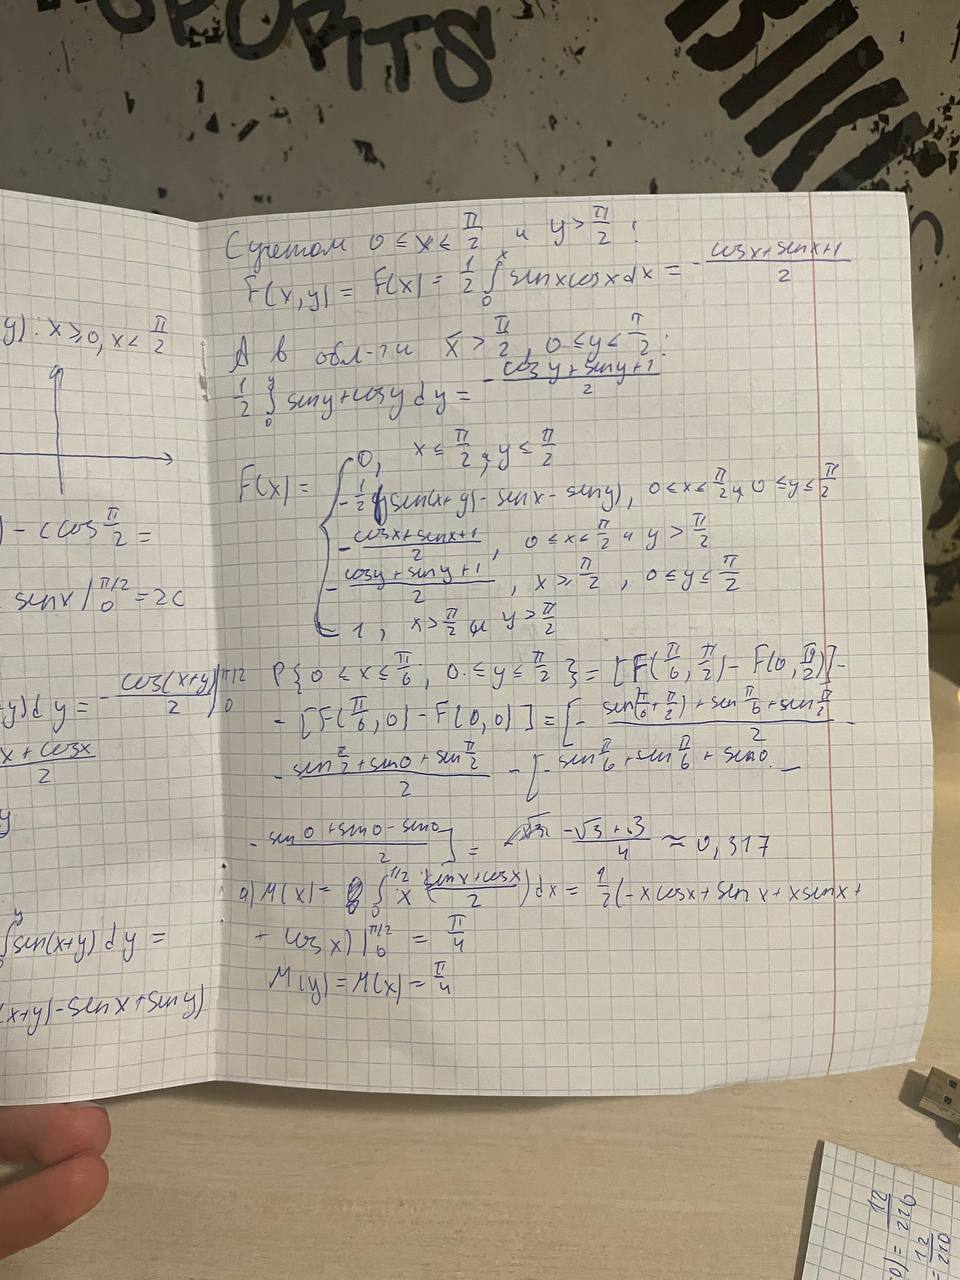 SPORTS
y): x ≥ 0, x < π/2
y
) - c cos π/2 =
sinx |₀^{π/2} = 2c
y) dy = - cos(x+y)/2 |₀^{π/2}
x + cosx / 2
y
∫₀^y sin(x+y) dy =
(x+y) - sin x + sin y)
С учетом 0 ≤ x ≤ π/2 и y > π/2 :
F(x,y) = F(x) = 1/2 ∫₀^x sinxcosxdx = - cosx+sinx+1 / 2
А в обл-ти x > π/2, 0 ≤ y ≤ π/2 :
1/2 ∫₀^y siny+cosy dy = - cosy+siny+1 / 2
F(x) = { 0, x ≤ π/2, y ≤ π/2
- 1/2 (sin(x+y) - sinx - siny), 0 ≤ x ≤ π/2 и 0 ≤ y ≤ π/2
- cosx+sinx+1 / 2 , 0 ≤ x ≤ π/2 и y > π/2
- cosy+siny+1 / 2 , x ≥ π/2 , 0 ≤ y ≤ π/2
1, x > π/2 и y > π/2
P{0 > x ≤ π/6, 0 ≤ y ≤ π/2} = [F(π/6, π/2) - F(0, π/2)] -
- [F(π/6, 0) - F(0,0)] = [- sin(π/6 + π/2) + sin π/6 + sin π/2 / 2 -
- sin π/2 + sin0 + sin π/2 / 2 - [- sin π/6 + sin π/6 + sin0 -
- sin0 + sin0 - sin0 / 2 ] = -√3 + 3 / 4 ≈ 0,317
а) M(x) = ∫₀^{π/2} x (sinx+cosx / 2) dx = 1/2 (-xcosx + sinx + xsinx +
+ cosx) |₀^{π/2} = π/4
M(y) = M(x) = π/4
0) = 12/220
= 12/220